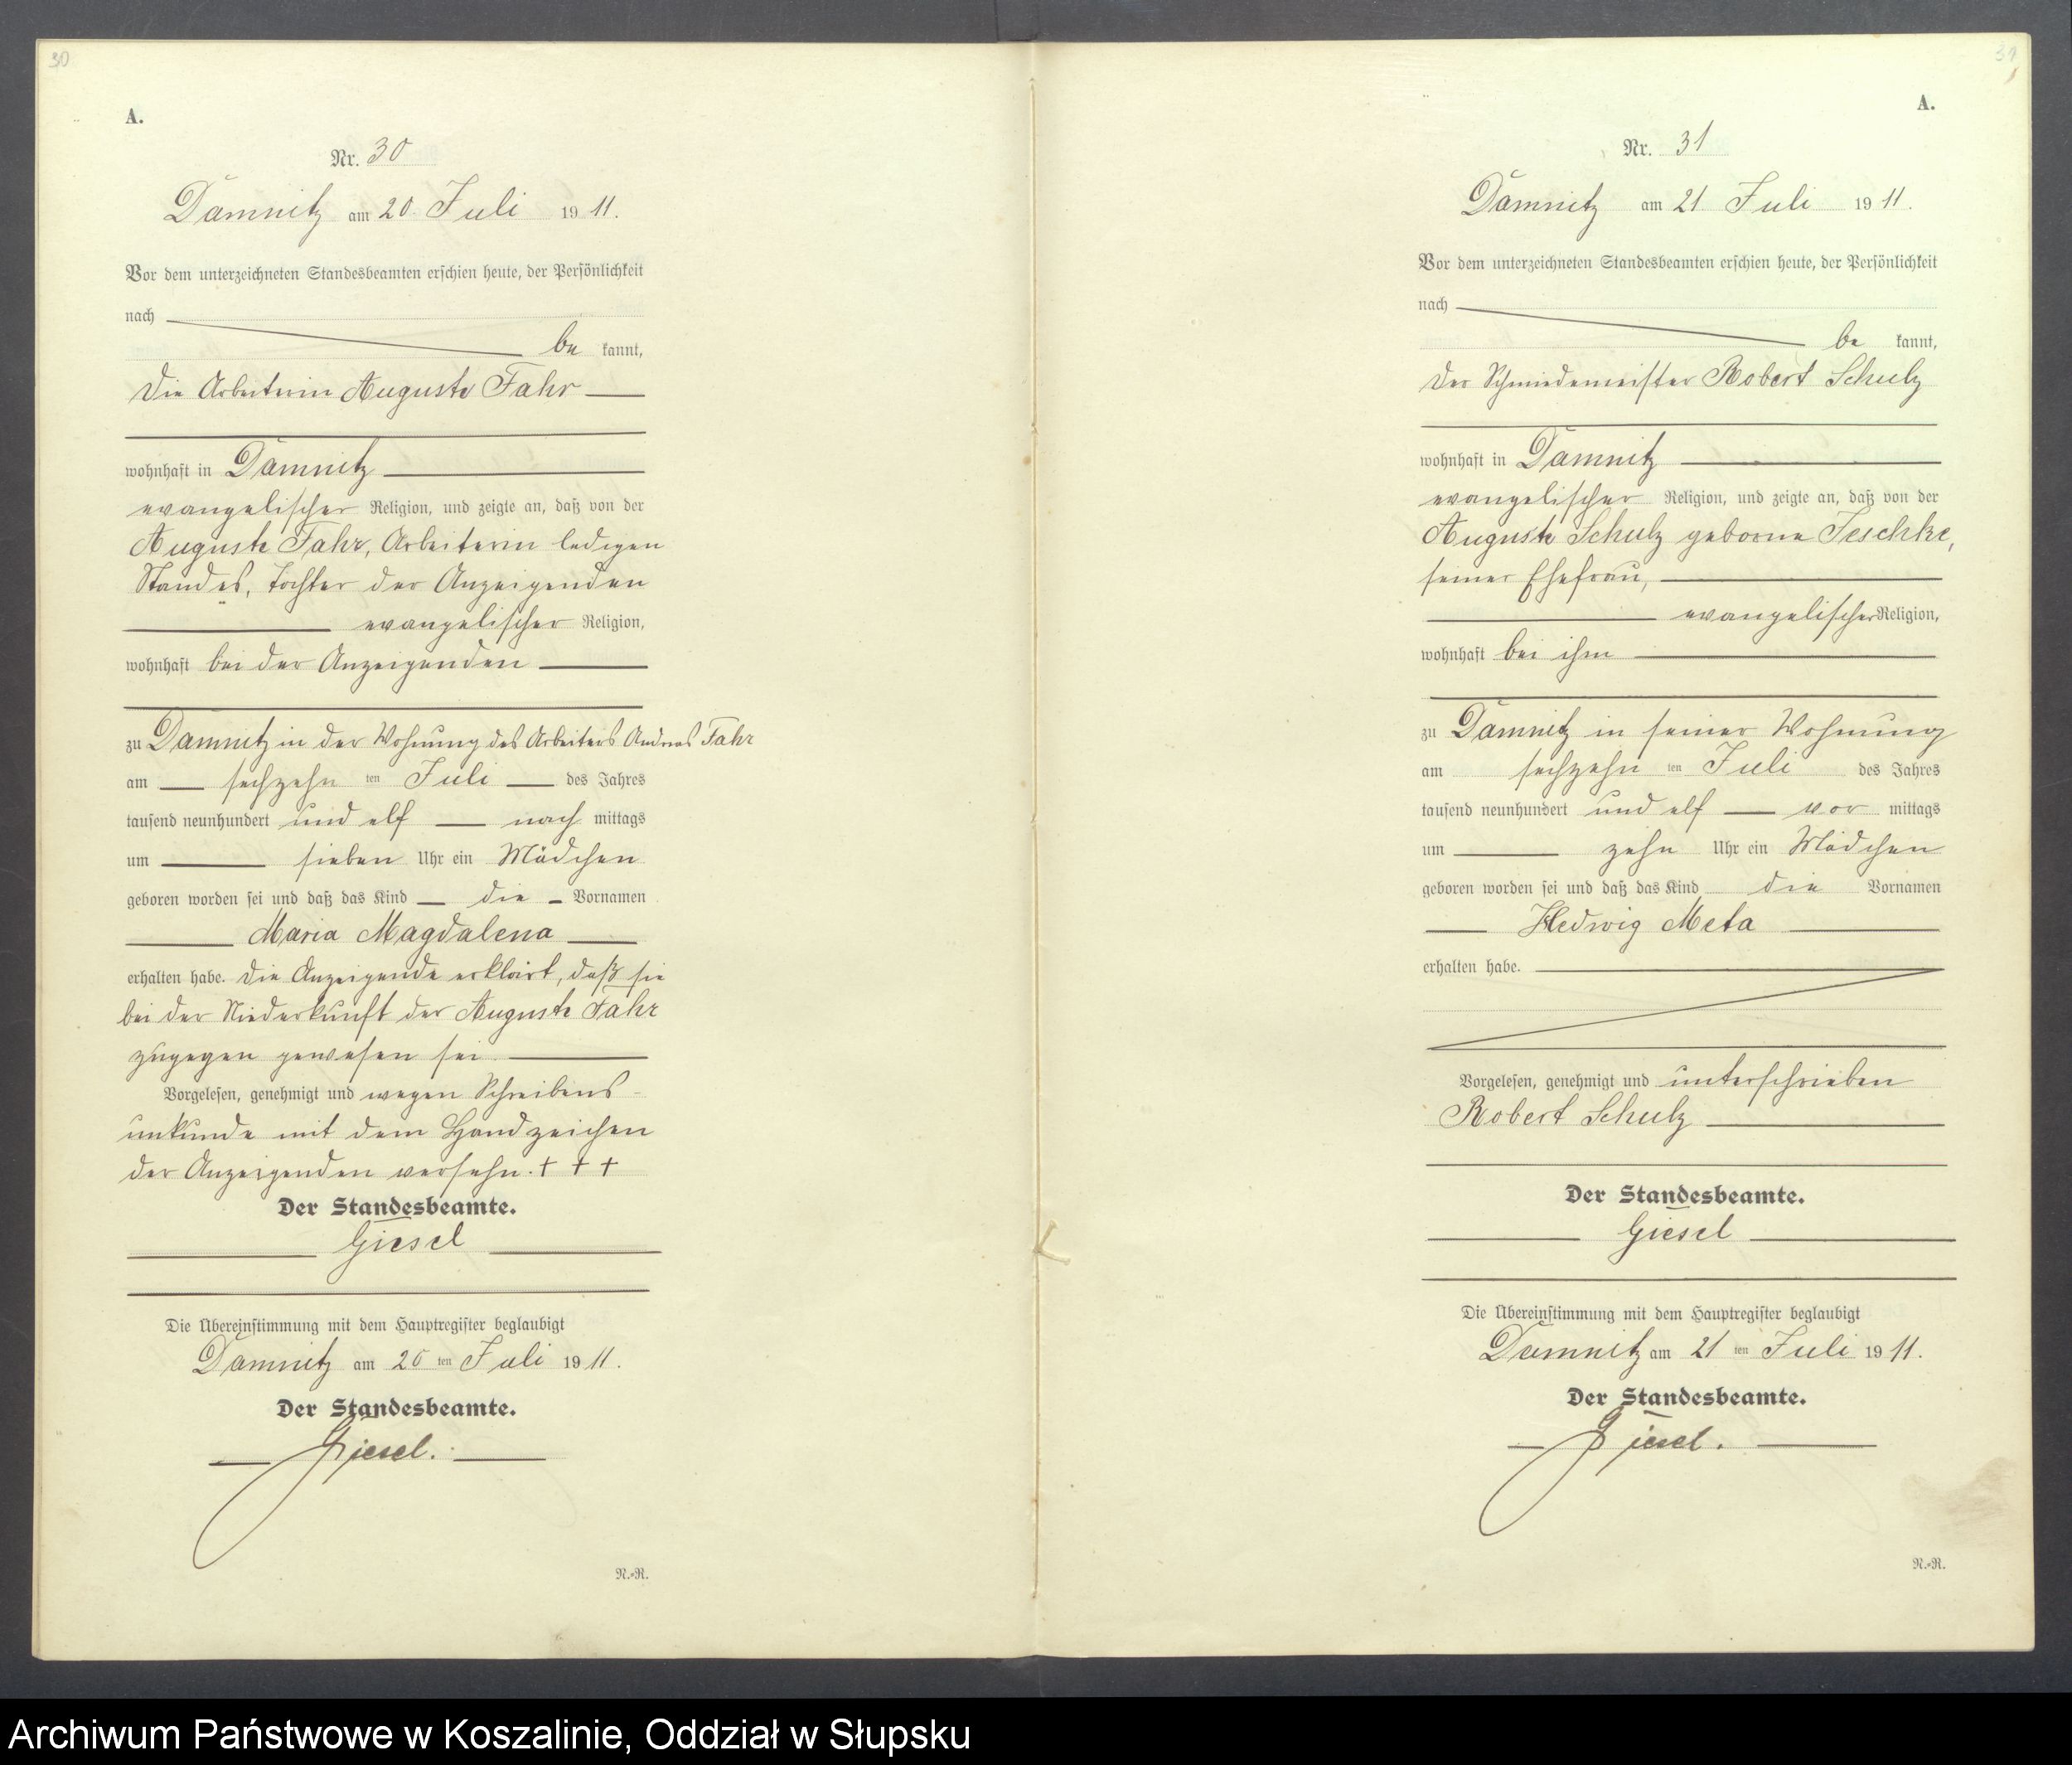 30
A.
Nr. 30
Damnitz am 20. Juli 1911.
Vor dem unterzeichneten Standesbeamten erschien heute, der Persönlichkeit
nach
be kannt,
die Arbeiterin Auguste Fahr
wohnhaft in Damnitz
evangelischer Religion, und zeigte an, daß von der
Auguste Fahr, Arbeiterin ledigen
Standes, Tochter der Anzeigenden
evangelischer Religion,
wohnhaft bei der Anzeigenden
zu Damnitz in der Wohnung des Arbeiters Andreas Fahr
am sechzehn ten Juli des Jahres
tausend neunhundert und elf nach mittags
um sieben Uhr ein Mädchen
geboren worden sei und daß das Kind die Vornamen
Maria Magdalena
erhalten habe. Die Anzeigende erklärt, daß sie
bei der Niederkunft der Auguste Fahr
zugegen gewesen sei.
Vorgelesen, genehmigt und wegen Schreibens-
unkunde mit dem Handzeichen
der Anzeigenden versehn. + + +
Der Standesbeamte.
Giesel
Die Übereinstimmung mit dem Hauptregister beglaubigt
Damnitz am 20 ten Juli 1911.
Der Standesbeamte.
Giesel.
N.=R.
31
A.
Nr. 31
Damnitz am 21 Juli 1911.
Vor dem unterzeichneten Standesbeamten erschien heute, der Persönlichkeit
nach
be kannt,
der Schmiedemeister Robert Schulz
wohnhaft in Damnitz
evangelischer Religion, und zeigte an, daß von der
Auguste Schulz geborne Jeschke,
seiner Ehefrau,
evangelischer Religion,
wohnhaft bei ihm
zu Damnitz in seiner Wohnung
am sechzehn ten Juli des Jahres
tausend neunhundert und elf vor mittags
um zehn Uhr ein Mädchen
geboren worden sei und daß das Kind die Vornamen
Hedwig Meta
erhalten habe.
Vorgelesen, genehmigt und unterschrieben
Robert Schulz
Der Standesbeamte.
Giesel
Die Übereinstimmung mit dem Hauptregister beglaubigt
Damnitz am 21 ten Juli 1911.
Der Standesbeamte.
Giesel.
N.=R.
Archiwum Państwowe w Koszalinie, Oddział w Słupsku